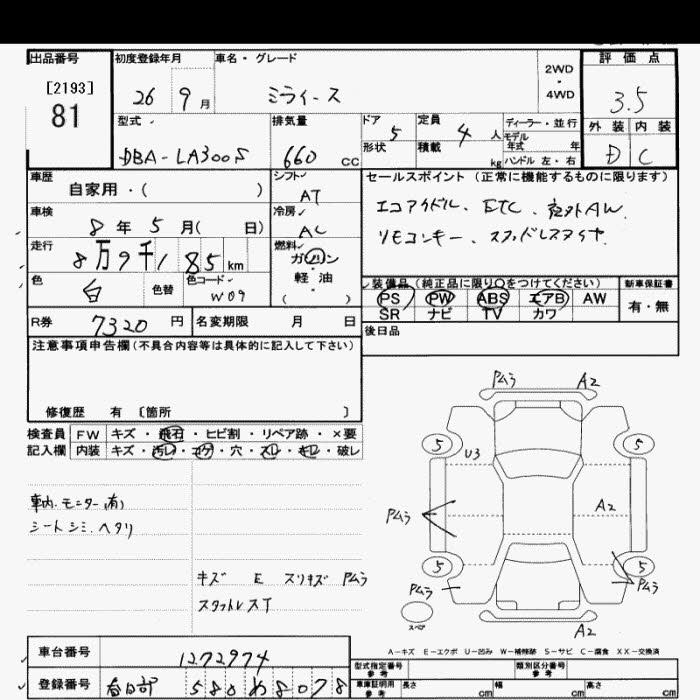 出品番号 初度登録年月 車名・グレード 評価点
[2193]
81
26 9月 ミライース 2WD・4WD 3.5
型式 排気量 ドア 5 定員 4人 ディーラー・並行 外装 内装
モデル年式 年
DBA-LA300S 660 cc 形状 積載 kg ハンドル 左・右 D C
車歴 シフト セールスポイント (正常に機能するものに限ります)
自家用・( ) AT
車検 8年 5月( 日) 冷房 AC エコアイドル、ETC、社外AW
走行 8万9千185km 燃料 ガソリン・軽油 ( ) リモコンキー、スタッドレスタイヤ
色 白 色替 色コード W09
装備品 (純正品に限り○をつけてください) 新車保証書
PS PW ABS エアB AW 有・無
SR ナビ TV カワ
R券 7320円 名変期限 月 日
後日品
注意事項申告欄(不具合内容等は具体的に記入して下さい)
修復歴 有 〔箇所 〕
検査員 FW キズ・飛石・ヒビ割・リペア跡・×要
記入欄 内装 キズ・汚レ・コゲ・穴・スレ・キレ・破レ
車内モニター(有)
シートシミ、ヘタリ
キズ E スリキズ Pムラ
スタットレスT
Pムラ A2
5 U3 5
Pムラ A2
5 5
Pムラ Pムラ
スペア A2
A-キズ E-エクボ U-凹み W-補修跡 S-サビ C-腐食 XX-交換済
車台番号 1272974
型式指定番号 参考 類別区分番号 参考
登録番号 春日部 580 め 8078
車庫証明用 参考 長さ cm 幅 cm 高さ cm